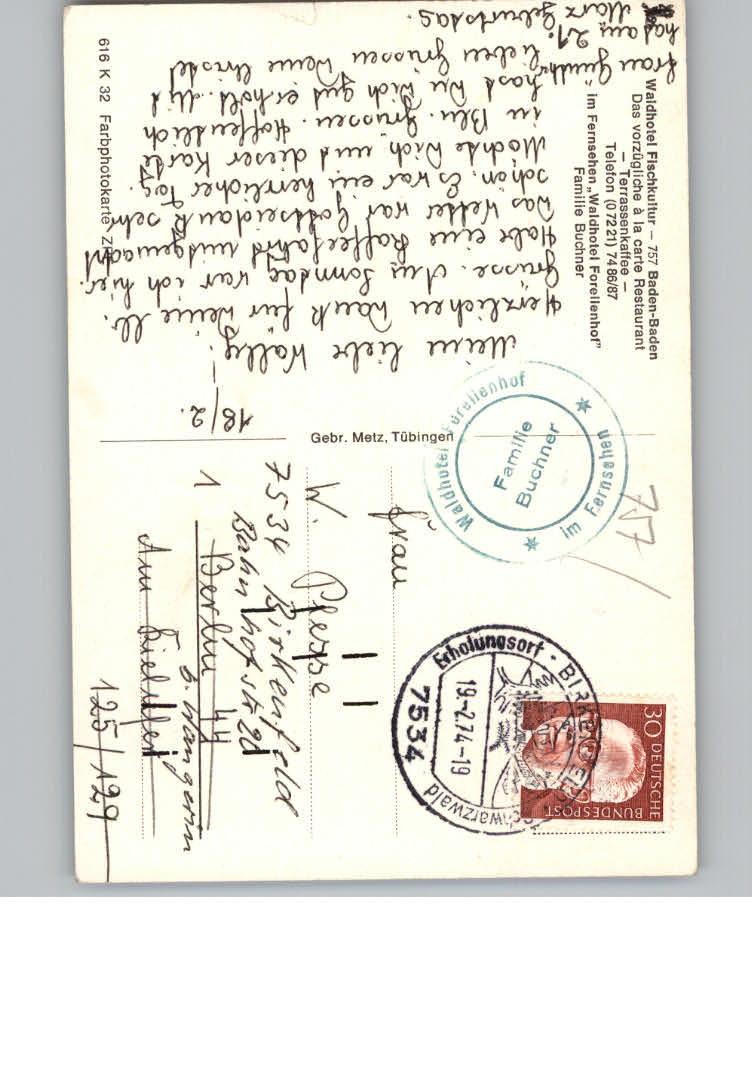 Waldhotel Fischkultur – 757 Baden-Baden
Das vorzügliche à la carte Restaurant
– Terrassenkaffee –
Telefon (0 72 21) 74 86/87
im Fernsehen „Waldhotel Forellenhof"
Familie Buchner
616 K 32 Farbphotokarte
Gebr. Metz, Tübingen
18/2.
Meine liebe Wally!
Herzlichen Dank für Deine lb.
Grüsse. Am Sonntag war ich hier.
Habe eine Kaffeefahrt mitgemacht
Das Wetter war Gottseidank sehr
schön. Es war ein herrlicher Tag.
Möchte Dich mit dieser Karte
in Bln. grüssen. Hoffendlich
hast Du Dich gut erholt. Mit
lieben Grüssen Deine Christel
Frau
hat am 21. März Geburtstag.
Waldhotel Forellenhof
im Fernsehen
Familie
Buchner
757
Frau
W. Plesse
7534 Birkenfeld
Bahnhofstr.
1 Berlin 44
b. Wangerin
Am
125/129
Erholungsort · BIRKENFELD
Schwarzwald
7534
19.-2.74-19
30 DEUTSCHE
BUNDESPOST